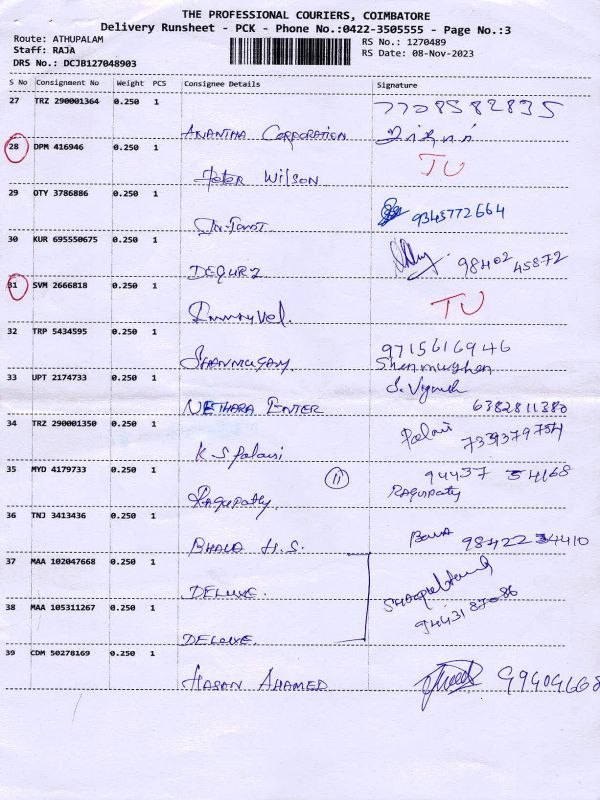 THE PROFESSIONAL COURIERS, COIMBATORE
Delivery Runsheet - PCK - Phone No.:0422-3505555 - Page No.:3
Route: ATHUPALAM
Staff: RAJA
DRS No.: DCJB127048903
RS No.: 1270489
RS Date: 08-Nov-2023
S No Consignment No Weight PCS Consignee Details Signature
27 TRZ 290001364 0.250 1 7708582835
ANANTHA CORPORATION
28 DPM 416946 0.250 1 TU
Peter Wilson
29 OTY 3786886 0.250 1 9345772664
30 KUR 695550675 0.250 1 98402 45872
31 SVM 2666818 0.250 1 TU
32 TRP 5434595 0.250 1 9715616946
SHANMUGAM Shenmughen
33 UPT 2174733 0.250 1 S. Vignesh
NETHARA ENTER 6382811380
34 TRZ 290001350 0.250 1 Palani
K S Palani
35 MYD 4179733 0.250 1 11 94437 54168
Ragupathy RAGUPATY
36 TNJ 3413436 0.250 1
BHALA H.S. 98422 34410
37 MAA 102047668 0.250 1
DELUXE.
38 MAA 105311267 0.250 1 9443187086
DELUXE.
39 CDM 50278169 0.250 1
HASAN AHAMED 99404668